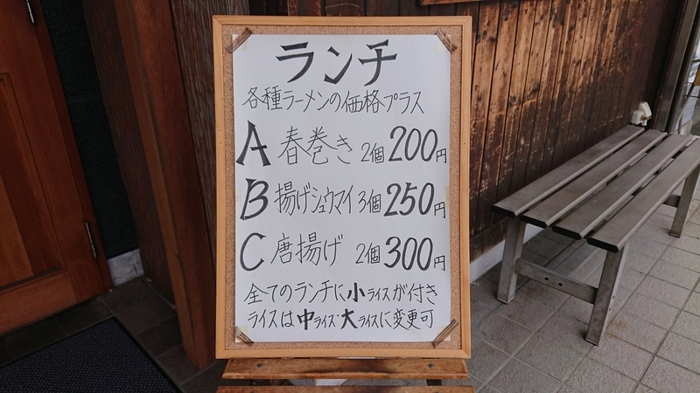 ランチ
各種ラーメンの価格プラス
A 春巻き 2個 200円
B 揚げシュウマイ 3個 250円
C 唐揚げ 2個 300円
全てのランチに小ライスが付き
ライスは中ライス・大ライスに変更可